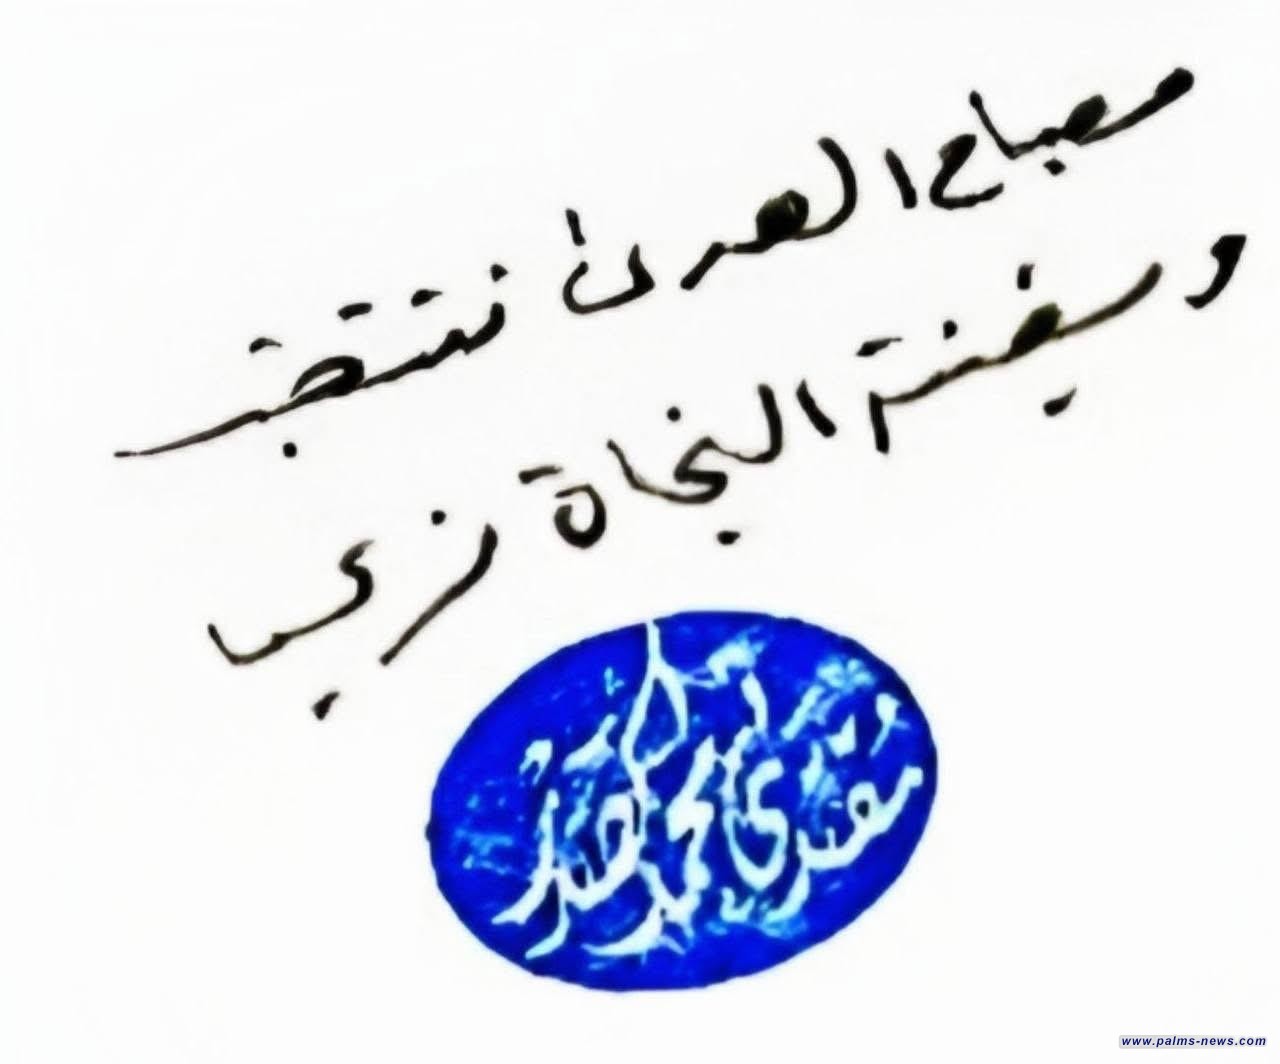 مصباح الهدى
وسفينة النجاة
مقتدى محمد الصدر
www.palms-news.com